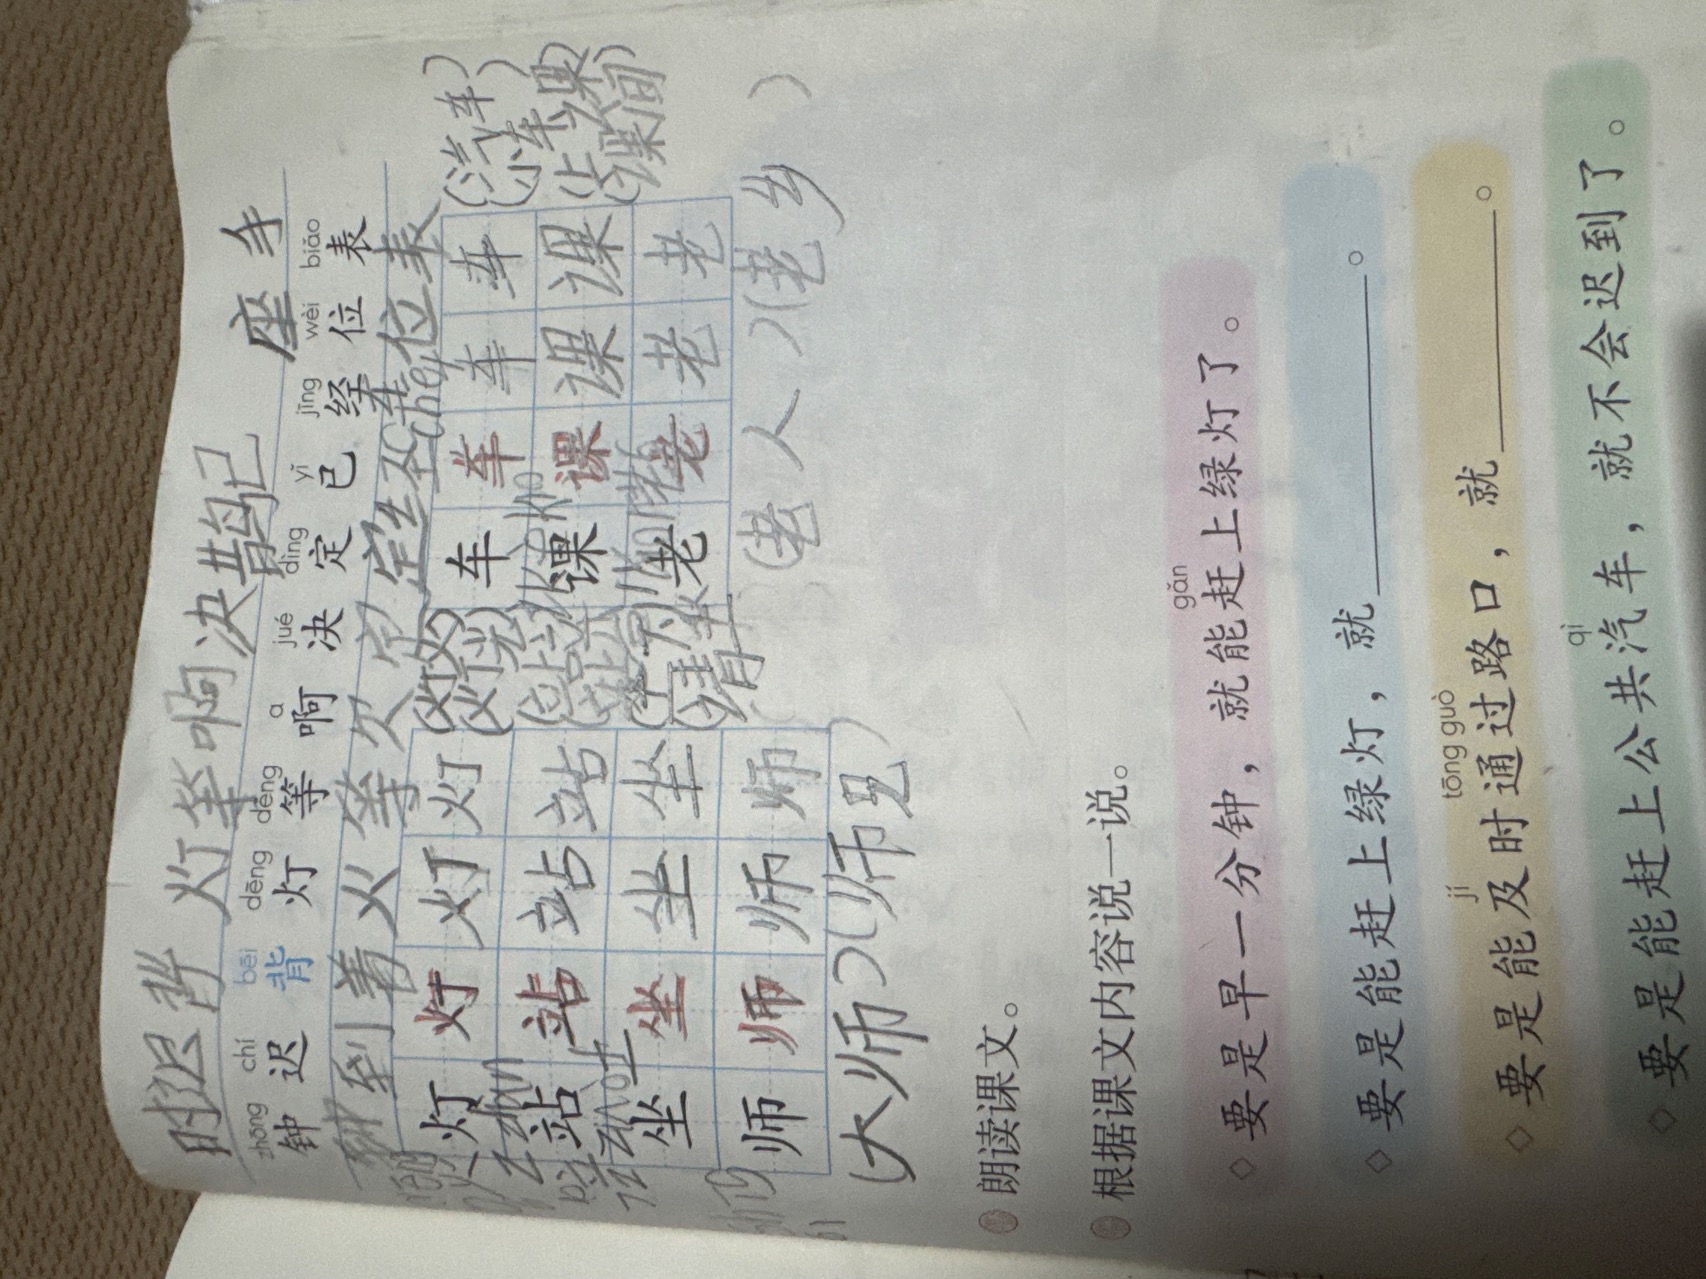 时迟背 灯等啊决 座手
zhōng chí bēi dēng děng a jué dìng yǐ jīng wèi biǎo
钟迟背灯等啊决定已经位表
钟到着火等欠定定 位表
che
灯灯灯灯(火灯)车车车车(汽车)
(灯光)(小车)
zhàn
站站站站(车站)课课课课(上课)
(课间)
坐坐坐坐(坐下)老老老老
师师师师(请坐)(老人)(老乡)
(大师)(师兄)
朗读课文。
根据课文内容说一说。
gǎn
◇ 要是早一分钟，就能赶上绿灯了。
◇ 要是能赶上绿灯，就________。
jí tōng guò
◇ 要是能及时通过路口，就________。
qì
◇ 要是能赶上公共汽车，就不会迟到了。